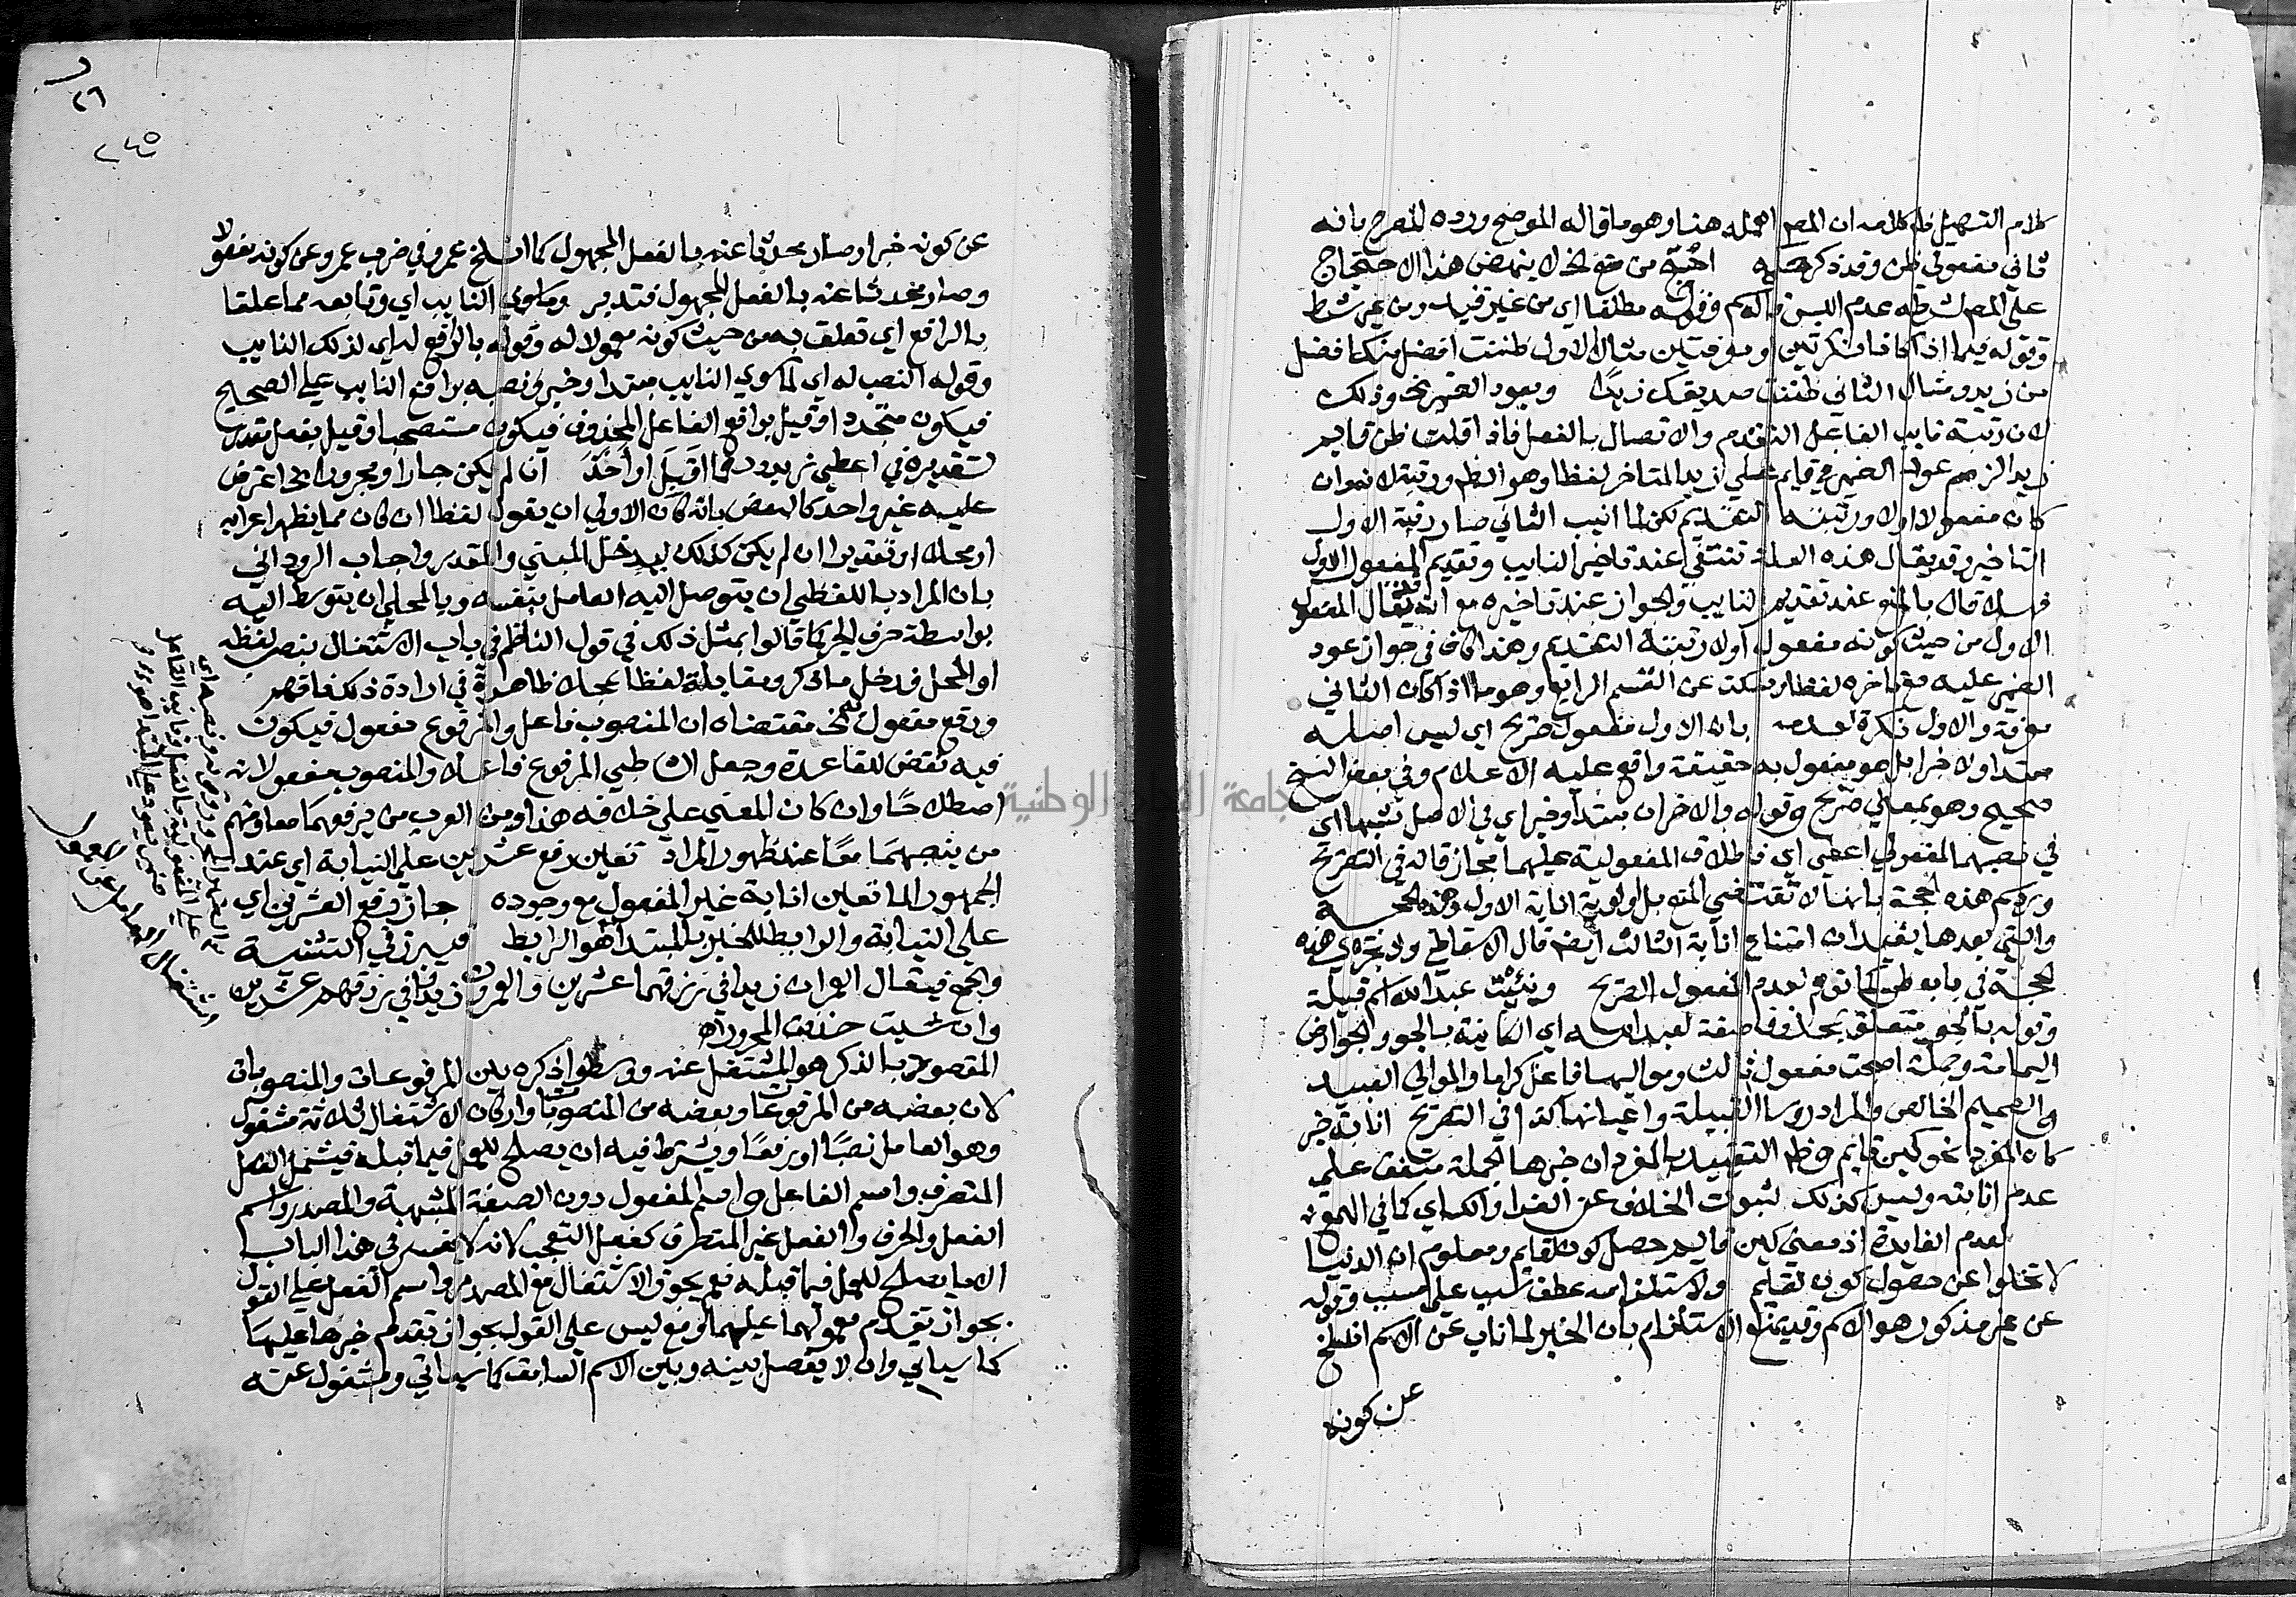 كلام التسهيل فان كلامه ان المص اهمله هنا وهو ما قاله الموضح ورده المصرح بانه
ثاني مفعولي ظن وقد ذكر حكمه احتج من منع الخ لا ينهض هذا الاحتجاج
على المص لشرطه عدم اللبس قاله سم وقوله مطلقا اي من غير قيد ومن غير شرط
وقوله فيما اذا كانا نكرتين او معرفتين مثال الاول ظننت افضل منك افضل
من زيد ومثال الثاني ظننت صديقك زيدا ويعود الضمير الخ وذلك
لان رتبة نايب الفاعل التقدم والاتصال بالفعل فاذا قلت ظن قايم
زيدا لزم عود الضمير في قايم على زيد المتاخر لفظا وهو الظ ورتبة لانه وان
كان مفعولا اولا ورتبته التقديم لكن لما انيب الثاني صار رتبة الاول
التاخير وقد يقال هذه العلة تنتفي عند تاخير النايب وتقديم المفعول الاول
فهلا قال بالمنع عند تقديم النايب والجواز عند تاخيره مع انه يقال المفعول
الاول من حيث كونه مفعولا اولا رتبته التقديم وهذا كاف في جواز عود
الضمير عليه مع تاخره لفظا وسكت عن القسم الرابع وهو ما اذا كان الثاني
معرفة والاول نكرة لعدمه بان الاول مفعول صريح اي ليس اصله
مبتدا ولا خبرا بل هو مفعول به حقيقة واقع عليه الاعلام وفي بعض النسخ
صحيح وهو بمعنى صريح وقوله والاخران مبتدا وخبر اي في الاصل شبها اي
في نصبهما المفعولي اعطى اي فاطلاق المفعولية عليهما مجاز قاله في التصريح
ورد سم هذه الحجة بانها لا تقتضي المنع بل اولوية انابة الاول وهذه الحجة
والتي بعدها يفيدان امتناع انابة الثالث ايضا قال الاسقاطي ولا تجري هذه
الحجة في باب ظن كما توهم لعدم المفعول الصريح ونبئت عبد الله اسم قبيلة
وقوله بالجو متعلق بمحذوف صفة لعبد الله اي الكاينة بالجو والجو ارض
اليمامة وجملة اصبحت مفعول ثالث ومواليها فاعل كراما والموالي العبيد
والصميم الخالص والمراد روسا القبيلة واعيانها كذا في التصريح انابة خبر
كان المفرد نحو كين قايم فظ التقييد بالمفرد ان خبرها الجملة متفق على
عدم انابته وليس كذلك لثبوت الخلاف عن الفرا والكساي كما في الهمع
لعدم الفايدة اذ معنى كين قايم حصل كون لقايم ومعلوم ان الدنيا
لا تخلوا عن حصول كون لقايم ولاستلزامه عطف سبب على مسبب وقوله
عن غير مذكور هو الاسم وقد يمنع الاستلزام بان الخبر لما ناب عن الاسم انسلخ
عن كونه
٢٦
٢٤٥
عن كونه خبرا وصار محدثا عنه بالفعل المجهول كما انسلخ عمرو في ضرب عمرو عن كونه مفعولا
وصار محدثا عنه بالفعل المجهول فتدبر وما سوى النايب اي وتابعه مما علقا
بالرافع اي تعلق به من حيث كونه معمولا له وقوله بالرافع له اي لذلك النايب
وقوله النصب له اي لما سوى النايب مبتدا وخبر ونصبه برافع النايب على الصحيح
فيكون متجددا وقيل برافع الفاعل المحذوف فيكون مستصحبا وقيل بفعل مقدر
تقديره في اعطي زيد درهما اقبل او اخذ ان لم يكن جارا ومجرورا الخ اعترض
عليه غير واحد كالبعض بانه كان الاولى ان يقول لفظا ان كان مما يظهر اعرابه
او محلا او تقديرا ان لم يكن كذلك ليدخل المبني والمقدر واجاب الروداني
بان المراد باللفظي ان يتوصل اليه العامل بنفسه وبالمحلي ان يتوسط اليه
بواسطة حرف الجر كما قالوا بمثل ذلك في قول الناظم في باب الاشتغال بنصب لفظه
او المحل فدخل ما ذكر ومقابلة لفظا بمحلا ظاهرة في ارادة ذلك فاقهر
ورفع مفعول الخ مقتضاه ان المنصوب فاعل والمرفوع مفعول فيكون
فيه نقض للقاعدة وجعل الشاطبي المرفوع فاعلا والمنصوب مفعولا نه
اصطلاحا وان كان المعنى على خلافه هذا ومن العرب من يرفعهما معا ومنهم
من ينصبهما معا عند ظهور المراد تعين رفع عشرين على النيابة اي عند
الجمهور المانعين انابة غير المفعول مع وجوده جاز رفع العشرين اي
على النيابة والرابط للخبر بالمبتدا هو الرابط فيبرز في التثنية
والجمع فيقال العمران زيدا في رزقهما عشرين والعمرون زيدا في رزقهم عشرين
وان شيت حذفت المجرور اه
المقصود بالذكر هو المشتغل عنه ووسطوا ذكره بين المرفوعات والمنصوبات
لان بعضه من المرفوعات وبعضه من المنصوبات واركان الاشتغال ثلاثة مشغول
وهو العامل نصبا او رفعا ويشترط فيه ان يصلح للعمل فيما قبله فيشمل الفعل
المتصرف واسم الفاعل واسم المفعول دون الصفة المشبهة والمصدر واسم
الفعل والحرف والفعل غير المتصرف كفعل التعجب لانه لا يفسر في هذا الباب
الا ما يصلح للعمل فيما قبله نعم يجوز الاشتغال مع المصدر واسم الفعل على القول
بجواز تقدم معمولهما عليهما ومع ليس على القول بجواز تقدم خبرها عليها
كما سياتي وان لا يفصل بينه وبين الاسم السابق كما سياتي ومشغول عنه
اشتغال العامل عن المعمول
جامعة النجاح الوطنية